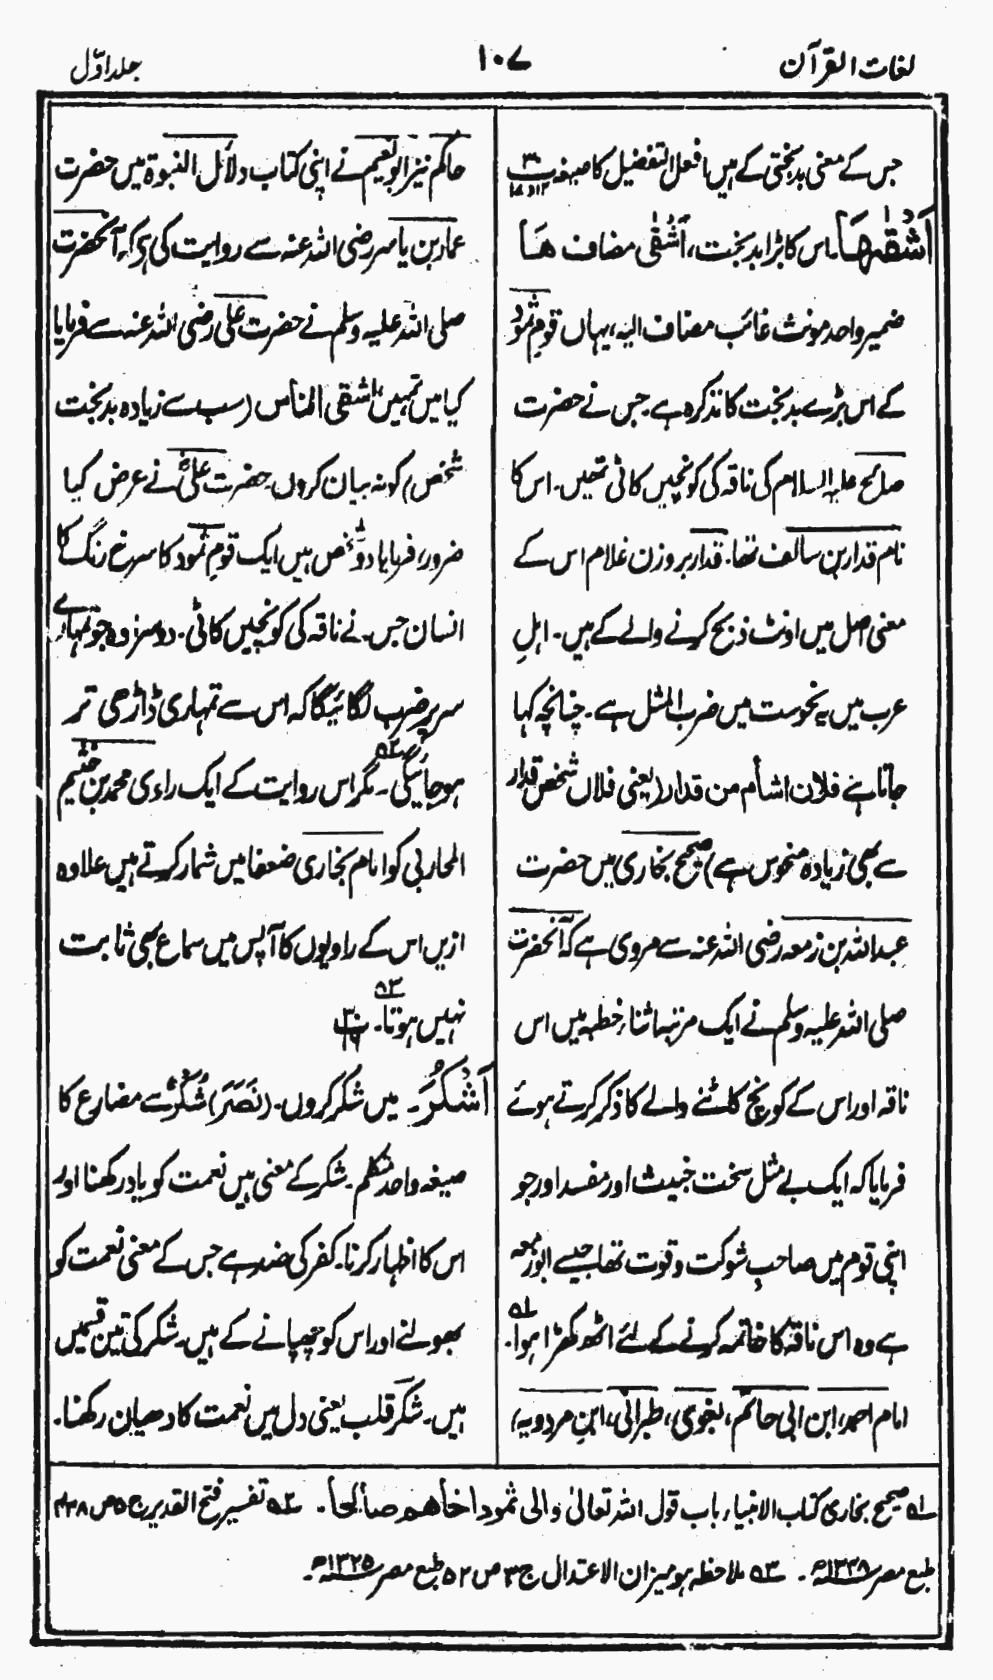 لغات القرآن
۱۰۷
جلد اوّل
جس کے معنی بدبختی کے ہیں افعل التفضیل کا صیغہ
اَشْقٰىهَا۔ اس کا بڑا بدبخت، اَشْقٰی مضاف ھَا
ضمیر واحد مونث غائب مضاف الیہ، یہاں قومِ ثمود
کے اس بڑے بدبخت کا تذکرہ ہے جس نے حضرت
صالح علیہ السلام کی ناقہ کی کونچیں کاٹی تھیں۔ اس کا
نام قدار بن سالف تھا۔ قدار بروزن غلام اس کے
معنی اصل میں اونٹ ذبح کرنے والے کے ہیں۔ اہلِ
عرب میں یہ نحوست میں ضرب المثل ہے۔ چنانچہ کہا
جاتا ہے فلان اشأم من قدار (یعنی فلاں شخص قدار
سے بھی زیادہ منحوس ہے) صحیح بخاری میں حضرت
عبداللہ بن زمعہ رضی اللہ عنہ سے مروی ہے کہ آنحضرت
صلی اللہ علیہ وسلم نے ایک مرتبہ اثناء خطبہ میں اس
ناقہ اور اس کے کونچ کاٹنے والے کا ذکر کرتے ہوئے
فرمایا کہ ایک بے مثل سخت خبیث اور مفسد اور جو
اپنی قوم میں صاحبِ شوکت و قوت تھا جیسے ابوزمعہ
ہے وہ اس ناقہ کا خاتمہ کرنے کے لئے اٹھ کھڑا ہوا۔ ۱؎
امام احمد، ابن ابی حاتم، بغوی، طبرانی، ابن مردویہ،
حاکم نیز ابونعیم نے اپنی کتاب دلائل النبوۃ میں حضرت
عمار بن یاسر رضی اللہ عنہ سے روایت کی ہے کہ آنحضرت
صلی اللہ علیہ وسلم نے حضرت علی رضی اللہ عنہ سے فرمایا
کیا میں تمہیں اشقی الناس (سب سے زیادہ بدبخت
شخص) کو نہ بیان کروں حضرت علیؓ نے عرض کیا
ضرور، فرمایا دو شخص ہیں ایک قومِ ثمود کا سرخ رنگ کا
انسان جس نے ناقہ کی کونچیں کاٹی۔ دوسرا وہ جو تمہارے
سر پر ضرب لگائیگا کہ اس سے تمہاری ڈاڑھی تر
ہو جائیگی۔ ۲؎ مگر اس روایت کے ایک راوی محمد بن خثیم
المحاربی کو امام بخاری ضعفا میں شمار کرتے ہیں علاوہ
ازیں اس کے راویوں کا آپس میں سماع بھی ثابت
نہیں ہوتا۔ ۳؎
اَشْكُرَ۔ میں شکر کروں۔ (نَصَرَ) شُکْرٌ سے مضارع کا
صیغہ واحد متکلم۔ شکر کے معنی ہیں نعمت کو یاد رکھنا اور
اس کا اظہار کرنا۔ کفر کی ضد ہے جس کے معنی نعمت کو
بھولنے اور اس کو چھپانے کے ہیں۔ شکر کی تین قسمیں
ہیں۔ شکر قلب یعنی دل میں نعمت کا دھیان رکھنا۔
۱؎ صحیح بخاری کتاب الانبیاء باب قول اللہ تعالیٰ والی ثمود اخاھم صالحا۔ ۲؎ تفسیر فتح القدیر ج ۵ ص ۴۳۸
طبع مصر ۱۳۳۸ھ۔ ۳؎ ملاحظہ ہو میزان الاعتدال ج ۳ ص ۵۲ طبع مصر ۱۳۲۵ھ۔